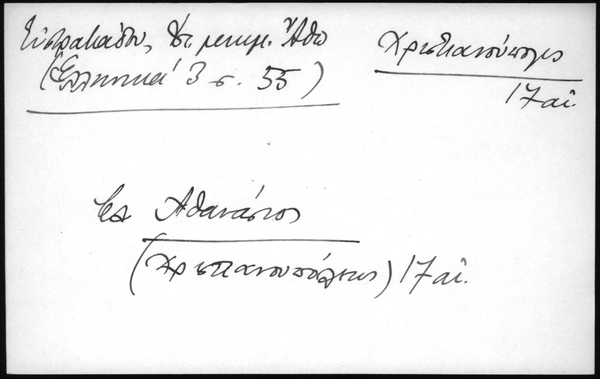 Εὐστρατιάδου, Ἁγ. μνημ. Ἄθω
(Ἑλληνικά 3 σ. 55)
Χριστιανούπολις
17 αἰ.
Ἀθανάσιος
(Χριστιανουπόλεως) 17 αἰ.